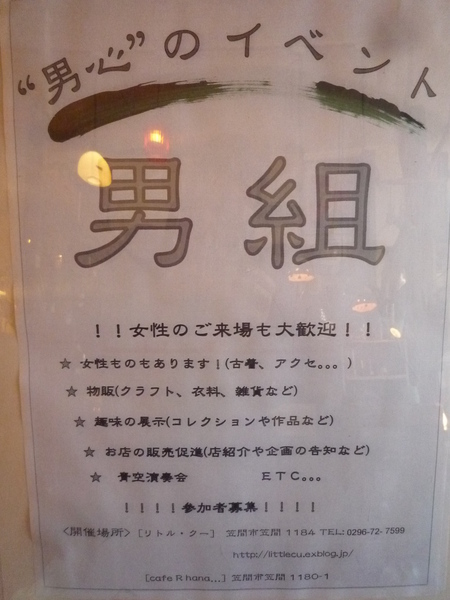 “男心”のイベント
男組
！！女性のご来場も大歓迎！！
☆ 女性ものもあります！(古着、アクセ。。。)
☆ 物販(クラフト、衣料、雑貨など)
☆ 趣味の展示(コレクションや作品など)
☆ お店の販売促進(店紹介や企画の告知など)
☆ 青空演奏会 ETC。。。
！！！！参加者募集！！！！
〈開催場所〉［リトル・クー］ 笠間市笠間 1184 TEL: 0296-72-7599
http://littlecu.exblog.jp/
［cafe R hana...］笠間市笠間 1180-1